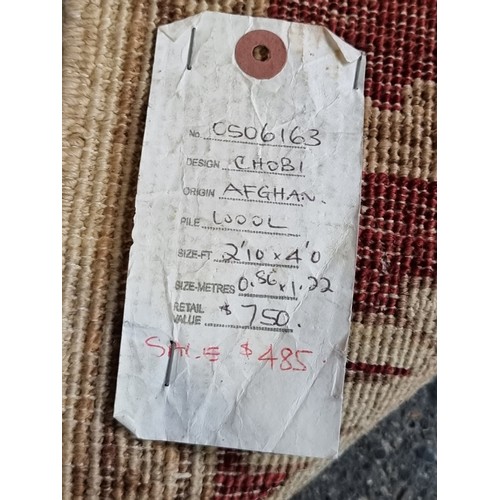 No. OS06163
DESIGN CHOBI
ORIGIN AFGHAN.
PILE WOOL
SIZE-FT. 2'10 x 4'0
SIZE-METRES 0.86 x 1.22
RETAIL VALUE $750.
SALE $485